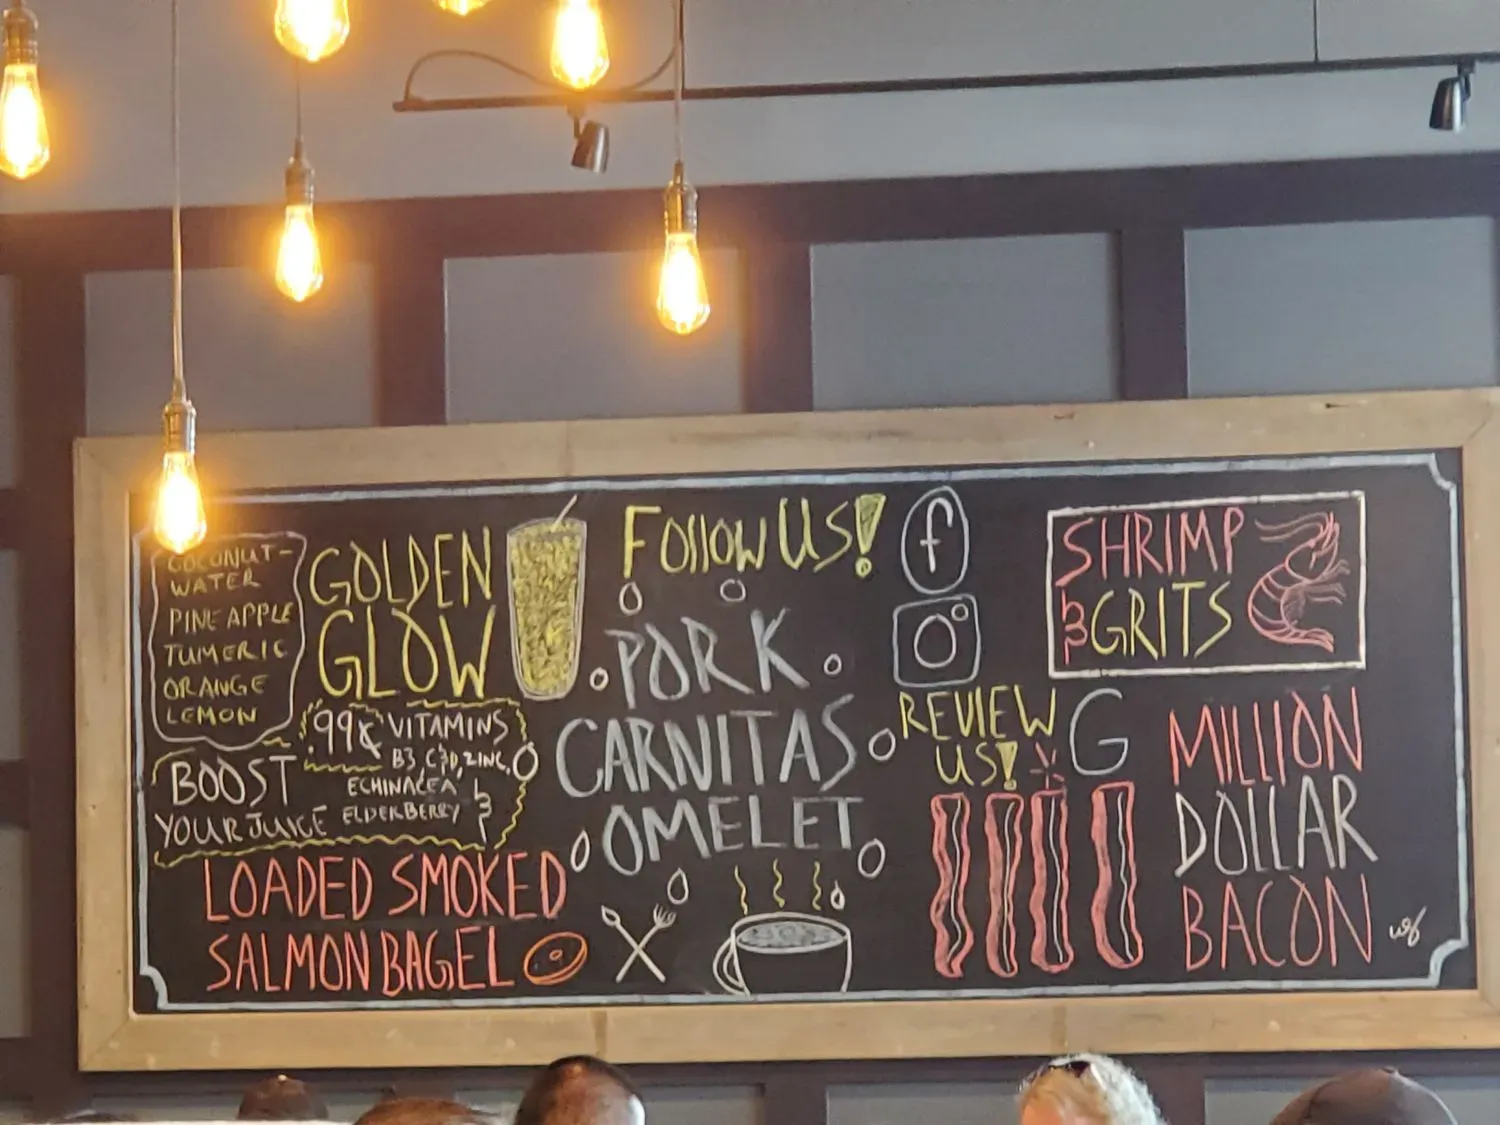 COCONUT-
WATER
PINEAPPLE
TUMERIC
ORANGE
LEMON
GOLDEN
GLOW
.99¢ VITAMINS
B3, C & D, ZINC,
ECHINACEA
ELDERBERRY &
BOOST
YOUR JUICE
LOADED SMOKED
SALMON BAGEL
FOllOW US!
f
PORK
CARNITAS
OMELET
REVIEW
US!
G
SHRIMP
& GRITS
MILLION
DOLLAR
BACON